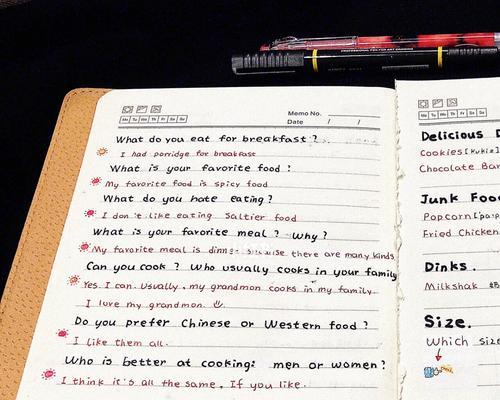 Mo Tu We Th Fr Sa Su
Memo No.
Date / /
What do you eat for breakfast?
I had porridge for breakfast
What is your favorite food?
My favorite food is spicy food
What do you hate eating?
I don't like eating Saltier food
What is your favorite meal? Why?
My favorite meal is because there are many kinds
Can you cook? Who usually cooks in your family
Yes. I can. Usually, my grandmon cooks in my family
I love my grandmon.
Do you prefer Chinese or Western food?
I like them all.
Who is better at cooking: men or women?
I think it's all the same. If you like.
Mo Tu We Th Fr Sa Su
Delicious D
Cookies
Chocolate Bar
Junk Foo
Popcorn
Fried Chicken
Dinks.
Milkshak
Size.
Which size